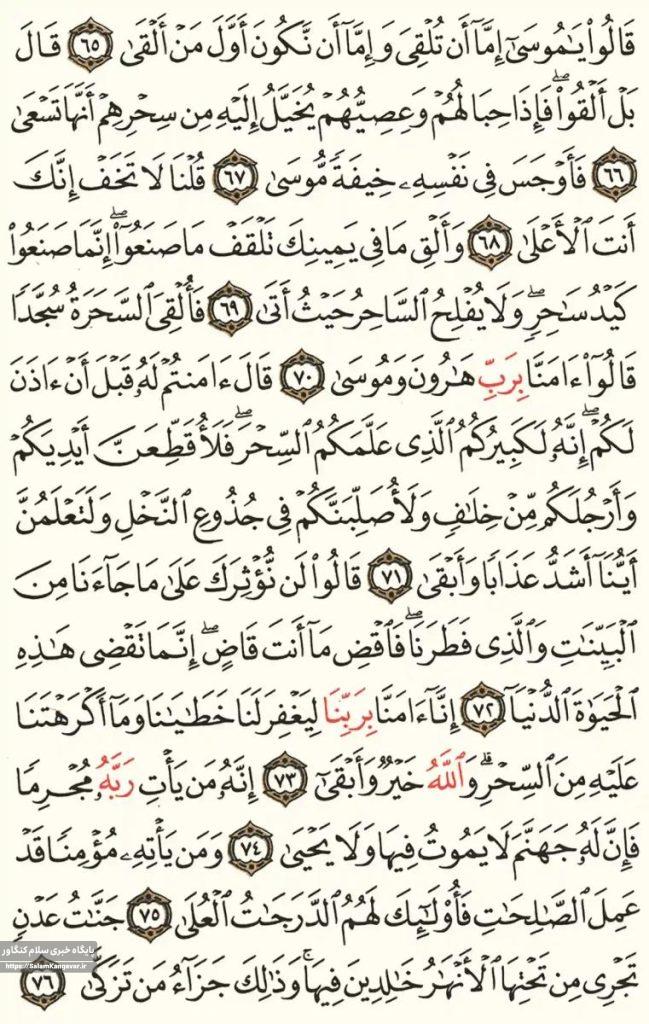 قَالُوا۟ يَـٰمُوسَىٰٓ إِمَّآ أَن تُلْقِىَ وَإِمَّآ أَن نَّكُونَ أَوَّلَ مَنْ أَلْقَىٰ ٦٥ قَالَ
بَلْ أَلْقُوا۟ۖ فَإِذَا حِبَالُهُمْ وَعِصِيُّهُمْ يُخَيَّلُ إِلَيْهِ مِن سِحْرِهِمْ أَنَّهَا تَسْعَىٰ
٦٦ فَأَوْجَسَ فِى نَفْسِهِۦ خِيفَةً مُّوسَىٰ ٦٧ قُلْنَا لَا تَخَفْ إِنَّكَ
أَنتَ ٱلْأَعْلَىٰ ٦٨ وَأَلْقِ مَا فِى يَمِينِكَ تَلْقَفْ مَا صَنَعُوٓا۟ۖ إِنَّمَا صَنَعُوا۟
كَيْدُ سَـٰحِرٍۖ وَلَا يُفْلِحُ ٱلسَّاحِرُ حَيْثُ أَتَىٰ ٦٩ فَأُلْقِىَ ٱلسَّحَرَةُ سُجَّدًا
قَالُوٓا۟ ءَامَنَّا بِرَبِّ هَـٰرُونَ وَمُوسَىٰ ٧٠ قَالَ ءَامَنتُمْ لَهُۥ قَبْلَ أَنْ ءَاذَنَ
لَكُمْۖ إِنَّهُۥ لَكَبِيرُكُمُ ٱلَّذِى عَلَّمَكُمُ ٱلسِّحْرَۖ فَلَأُقَطِّعَنَّ أَيْدِيَكُمْ
وَأَرْجُلَكُم مِّنْ خِلَـٰفٍ وَلَأُصَلِّبَنَّكُمْ فِى جُذُوعِ ٱلنَّخْلِ وَلَتَعْلَمُنَّ
أَيُّنَآ أَشَدُّ عَذَابًا وَأَبْقَىٰ ٧١ قَالُوا۟ لَن نُّؤْثِرَكَ عَلَىٰ مَا جَآءَنَا مِنَ
ٱلْبَيِّنَـٰتِ وَٱلَّذِى فَطَرَنَاۖ فَٱقْضِ مَآ أَنتَ قَاضٍۖ إِنَّمَا تَقْضِى هَـٰذِهِ
ٱلْحَيَوٰةَ ٱلدُّنْيَآ ٧٢ إِنَّآ ءَامَنَّا بِرَبِّنَا لِيَغْفِرَ لَنَا خَطَـٰيَـٰنَا وَمَآ أَكْرَهْتَنَا
عَلَيْهِ مِنَ ٱلسِّحْرِۗ وَٱللَّهُ خَيْرٌ وَأَبْقَىٰٓ ٧٣ إِنَّهُۥ مَن يَأْتِ رَبَّهُۥ مُجْرِمًا
فَإِنَّ لَهُۥ جَهَنَّمَ لَا يَمُوتُ فِيهَا وَلَا يَحْيَىٰ ٧٤ وَمَن يَأْتِهِۦ مُؤْمِنًا قَدْ
عَمِلَ ٱلصَّـٰلِحَـٰتِ فَأُو۟لَـٰٓئِكَ لَهُمُ ٱلدَّرَجَـٰتُ ٱلْعُلَىٰ ٧٥ جَنَّـٰتُ عَدْنٍ
تَجْرِى مِن تَحْتِهَا ٱلْأَنْهَـٰرُ خَـٰلِدِينَ فِيهَاۚ وَذَٰلِكَ جَزَآءُ مَن تَزَكَّىٰ ٧٦
پایگاه خبری سلام کنگاور
https://SalamKangavar.ir